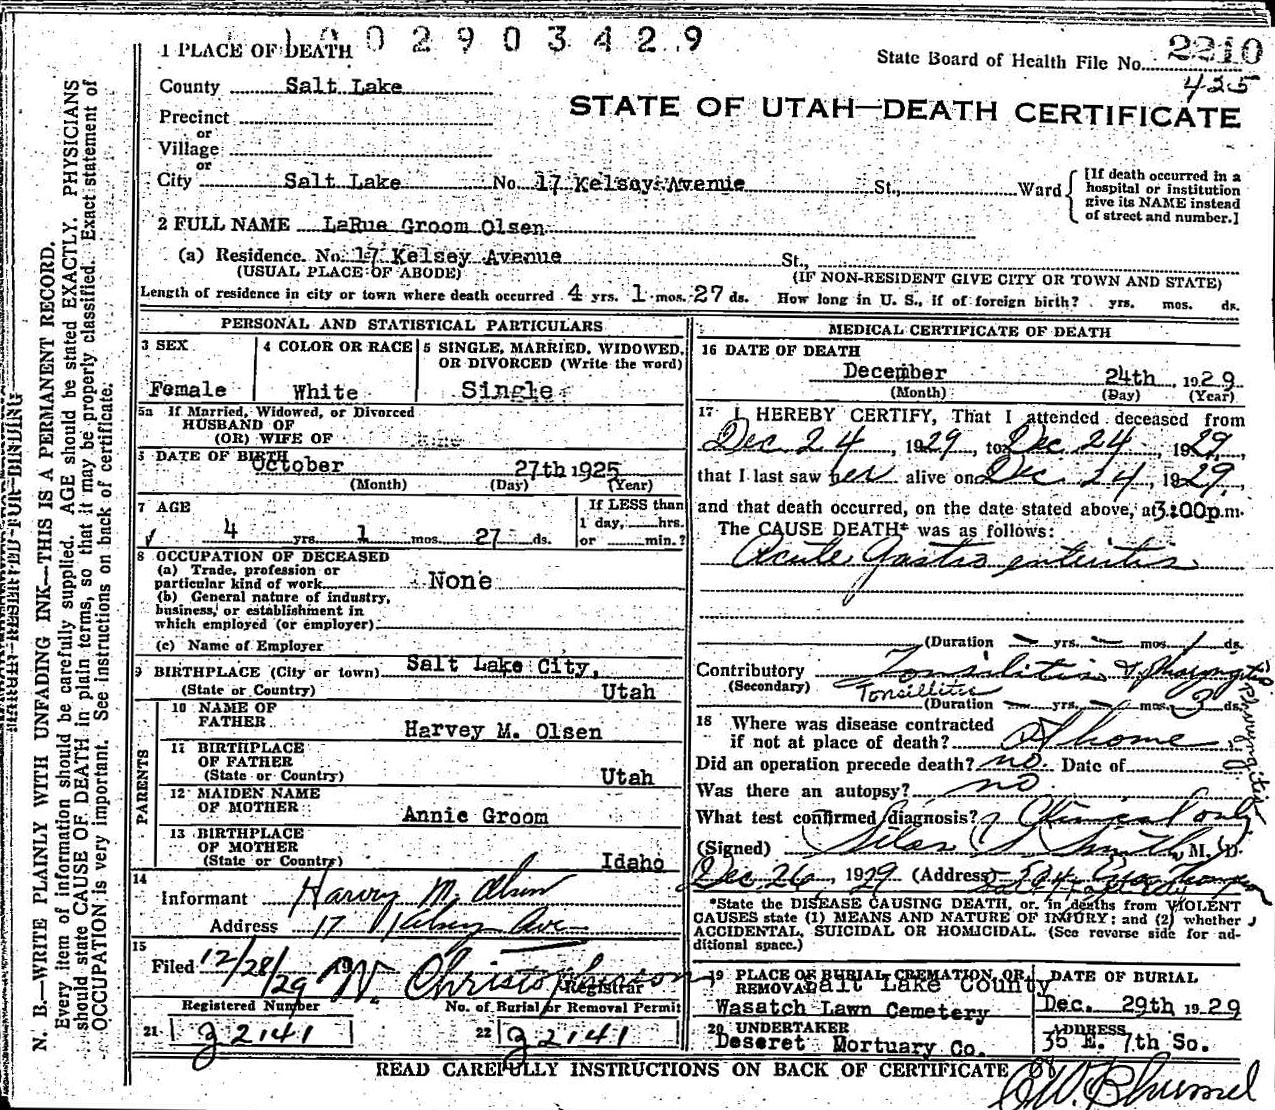 1 PLACE OF DEATH 1 0 0 2 9 0 3 4 2 9
State Board of Health File No. 2210
425
County Salt Lake
STATE OF UTAH—DEATH CERTIFICATE
Precinct
or
Village
or
City Salt Lake No. 17 Kelsey Avenue St., Ward
[If death occurred in a hospital or institution give its NAME instead of street and number.]
2 FULL NAME LaRue Groom Olsen
(a) Residence. No. 17 Kelsey Avenue St.,
(USUAL PLACE OF ABODE) (IF NON-RESIDENT GIVE CITY OR TOWN AND STATE)
Length of residence in city or town where death occurred 4 yrs. 1 mos. 27 ds. How long in U. S., if of foreign birth? yrs. mos. ds.
PERSONAL AND STATISTICAL PARTICULARS
3 SEX
Female
4 COLOR OR RACE
White
5 SINGLE, MARRIED, WIDOWED, OR DIVORCED (Write the word)
Single
5a If Married, Widowed, or Divorced
HUSBAND OF
(OR) WIFE OF
DATE OF BIRTH
October 27th 1925
(Month) (Day) (Year)
7 AGE
4 yrs. 1 mos. 27 ds.
If LESS than
1 day, hrs.
or min.?
8 OCCUPATION OF DECEASED
(a) Trade, profession or
particular kind of work None
(b) General nature of industry,
business, or establishment in
which employed (or employer)
(c) Name of Employer
9 BIRTHPLACE (City or town) Salt Lake City,
(State or Country) Utah
PARENTS
10 NAME OF
FATHER Harvey M. Olsen
11 BIRTHPLACE
OF FATHER
(State or Country) Utah
12 MAIDEN NAME
OF MOTHER Annie Groom
13 BIRTHPLACE
OF MOTHER
(State or Country) Idaho
14
Informant Harvy M. Olsen
Address 17 Kelsey Ave
15
Filed 12/28/29 19 W. Christopherson
Registrar
Registered Number No. of Burial or Removal Permit
21 g2141 22 g2141
MEDICAL CERTIFICATE OF DEATH
16 DATE OF DEATH
December 24th 1929
(Month) (Day) (Year)
17 I HEREBY CERTIFY, That I attended deceased from
Dec 24, 1929, to Dec 24, 1929,
that I last saw her alive on Dec 24, 1929,
and that death occurred, on the date stated above, at 3:00p.m.
The CAUSE DEATH* was as follows:
Acute Gastro enteritis
(Duration — yrs. — mos. 1 ds.
Contributory Tonsilitis & Pharyngitis
(Secondary) Tonsillitis
Pharyngitis
(Duration — yrs. — mos. 3 ds.
18 Where was disease contracted
if not at place of death? At home
Did an operation precede death? no. Date of
Was there an autopsy? no
What test confirmed diagnosis? Clinical only
(Signed) Silas G Smith, M. D.
Dec 26, 1929 (Address)
*State the DISEASE CAUSING DEATH, or, in deaths from VIOLENT
CAUSES state (1) MEANS AND NATURE OF INJURY; and (2) whether
ACCIDENTAL, SUICIDAL OR HOMICIDAL. (See reverse side for ad-
ditional space.)
19 PLACE OF BURIAL CREMATION, OR
REMOVAL Salt Lake County
Wasatch Lawn Cemetery
DATE OF BURIAL
Dec. 29th 1929
20 UNDERTAKER
Deseret Mortuary Co.
ADDRESS
35 E. 7th So.
READ CAREFULLY INSTRUCTIONS ON BACK OF CERTIFICATE
MARGIN RESERVED FOR BINDING
N. B.—WRITE PLAINLY WITH UNFADING INK—THIS IS A PERMANENT RECORD.
Every item of information should be carefully supplied. AGE should be stated EXACTLY. PHYSICIANS
should state CAUSE OF DEATH in plain terms, so that it may be properly classified. Exact statement of
OCCUPATION is very important. See instructions on back of certificate.